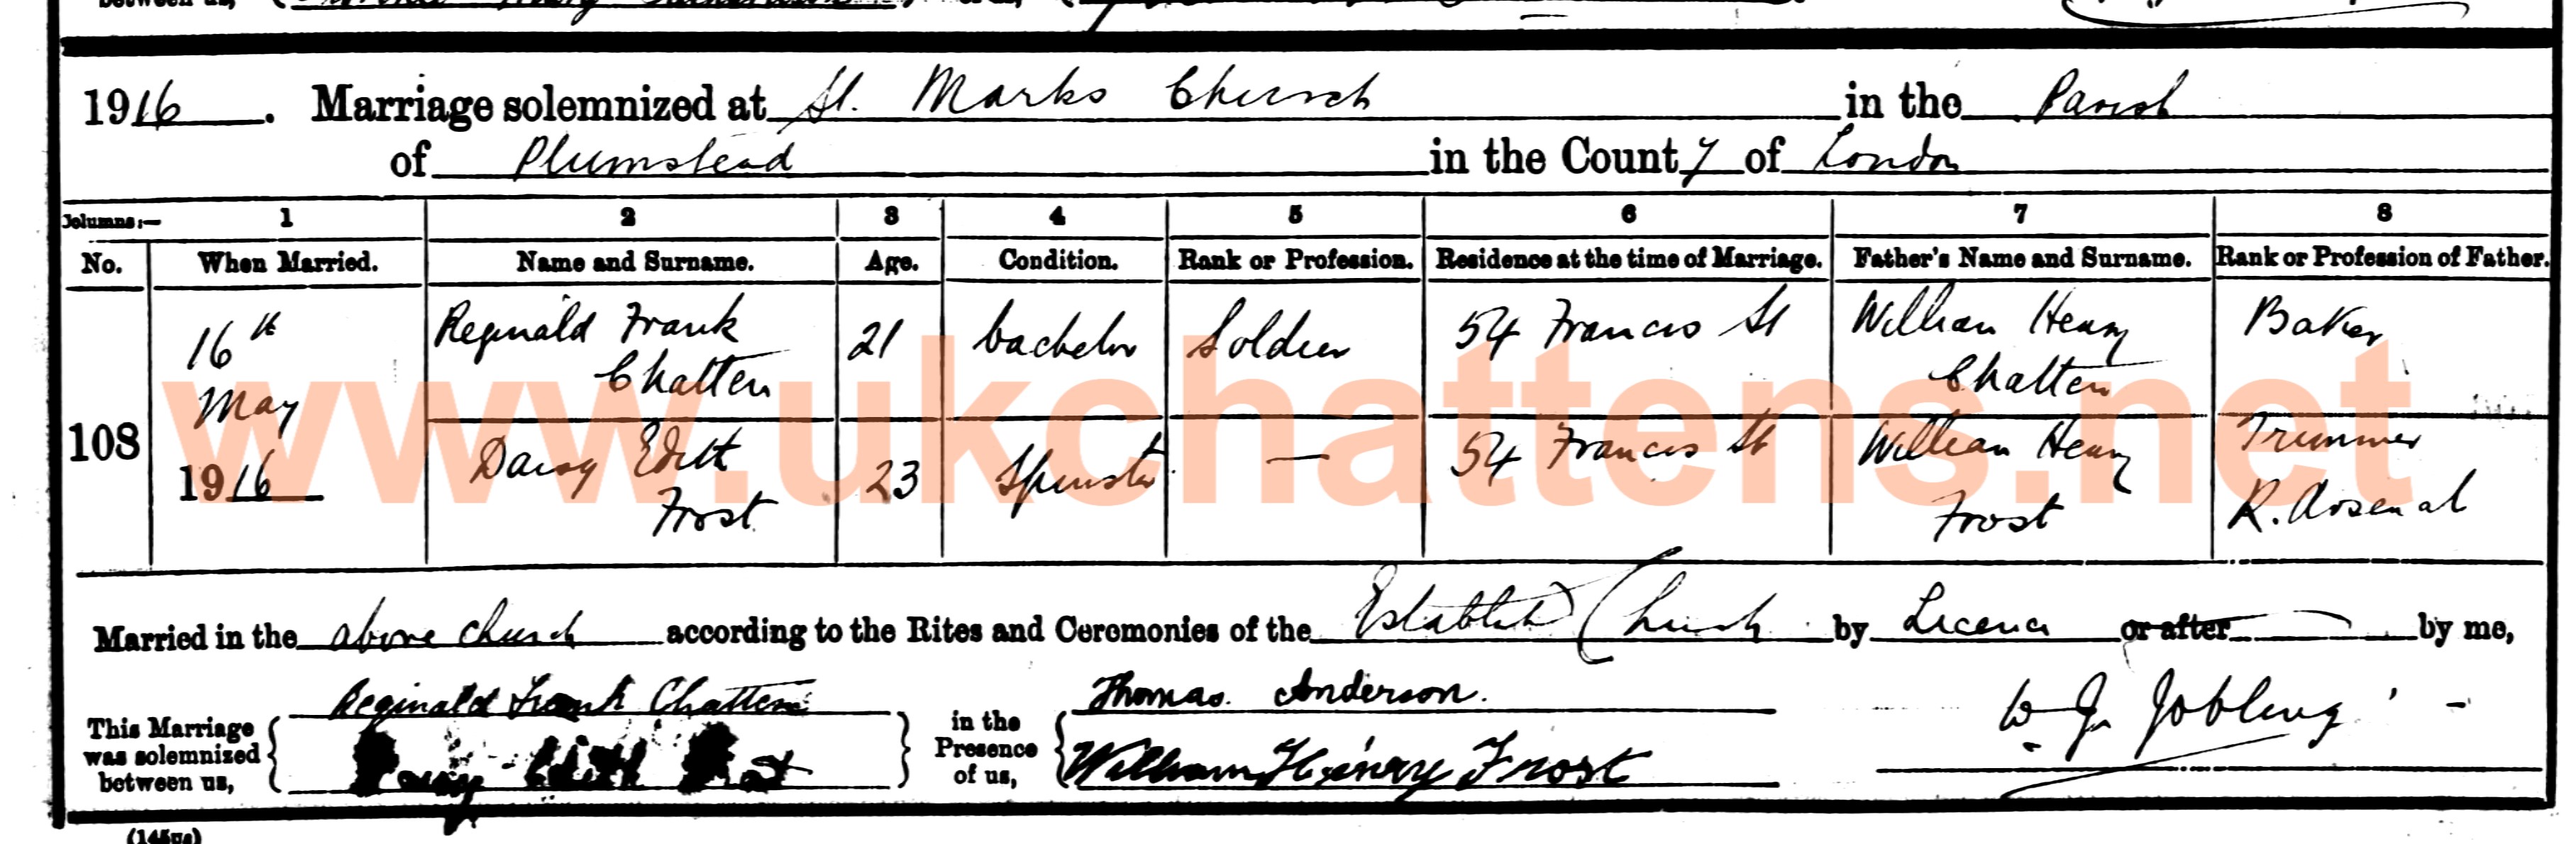 1916. Marriage solemnized at St. Marks Church in the Parish
of Plumstead in the County of London
Columns:— 1 2 3 4 5 6 7 8
No. When Married. Name and Surname. Age. Condition. Rank or Profession. Residence at the time of Marriage. Father's Name and Surname. Rank or Profession of Father.
108
16th May 1916
Reginald Frank Chatten 21 bachelor Soldier 54 Francis St William Henry Chatten Baker
Daisy Edith Frost 23 Spinster — 54 Francis St William Henry Frost Trimmer R. Arsenal
www.ukchattens.net
Married in the above church according to the Rites and Ceremonies of the Establish Church by Licence or after by me,
This Marriage was solemnized between us, { Reginald Frank Chatten } in the Presence of us, { Thomas Anderson. W G Jobling
Daisy Edith Frost William Henry Frost